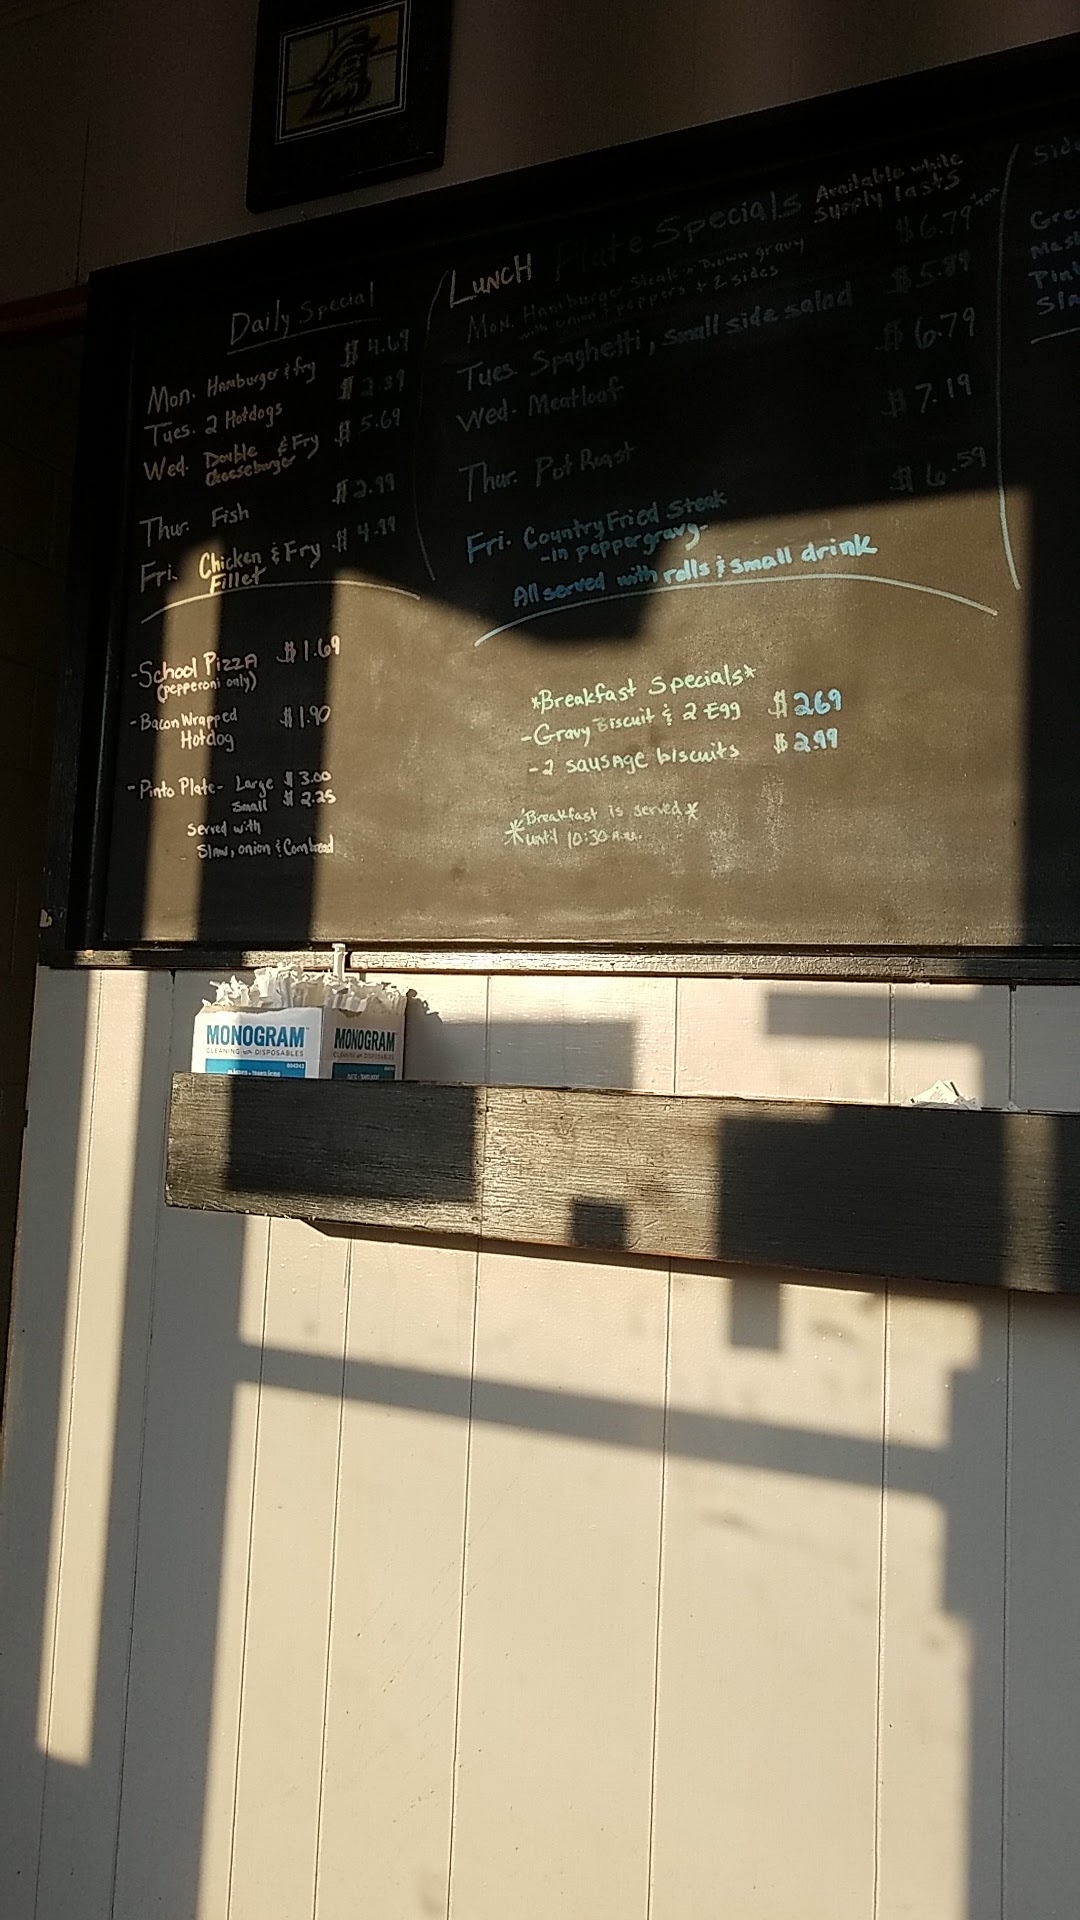 Daily Special
Mon. Hamburger & fry $4.69
Tues. 2 Hotdogs $2.39
Wed. Double & Fry $5.69
Cheeseburger
Thur. Fish $2.99
Fri. Chicken & Fry $4.99
Fillet
-School Pizza $1.69
(pepperoni only)
-Bacon Wrapped $1.90
Hotdog
-Pinto Plate- Large $3.00
Small $2.25
Served with
Slaw, onion & Cornbread
LUNCH Plate Specials Available while
Supply lasts
Mon. Hamburger Steak Brown gravy $6.79
with onion & peppers + 2 sides
Tues. Spaghetti, small side salad $5.89
Wed. Meatloaf $6.79
Thur. Pot Roast $7.19
Fri. Country Fried Steak $6.59
-in peppergravy-
All served with rolls & small drink
*Breakfast Specials*
-Gravy Biscuit & 2 Egg $2.69
-2 sausage biscuits $2.99
*Breakfast is served*
until 10:30 A.M.
MONOGRAM
CLEANING with DISPOSABLES
MONOGRAM
CLEANING with DISPOSABLES